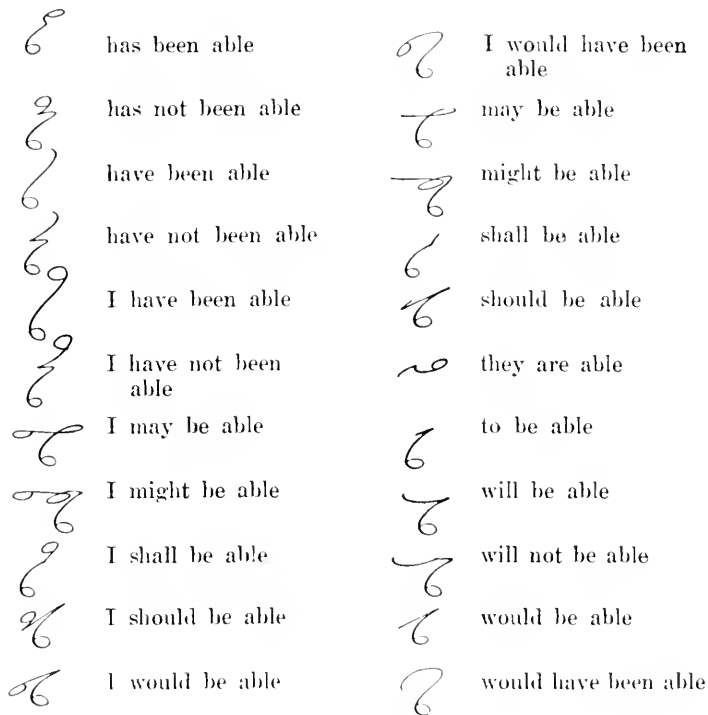 has been able
has not been able
have been able
have not been able
I have been able
I have not been
able
I may be able
I might be able
I shall be able
I should be able
I would be able
I would have been
able
may be able
might be able
shall be able
should be able
they are able
to be able
will be able
will not be able
would be able
would have been able